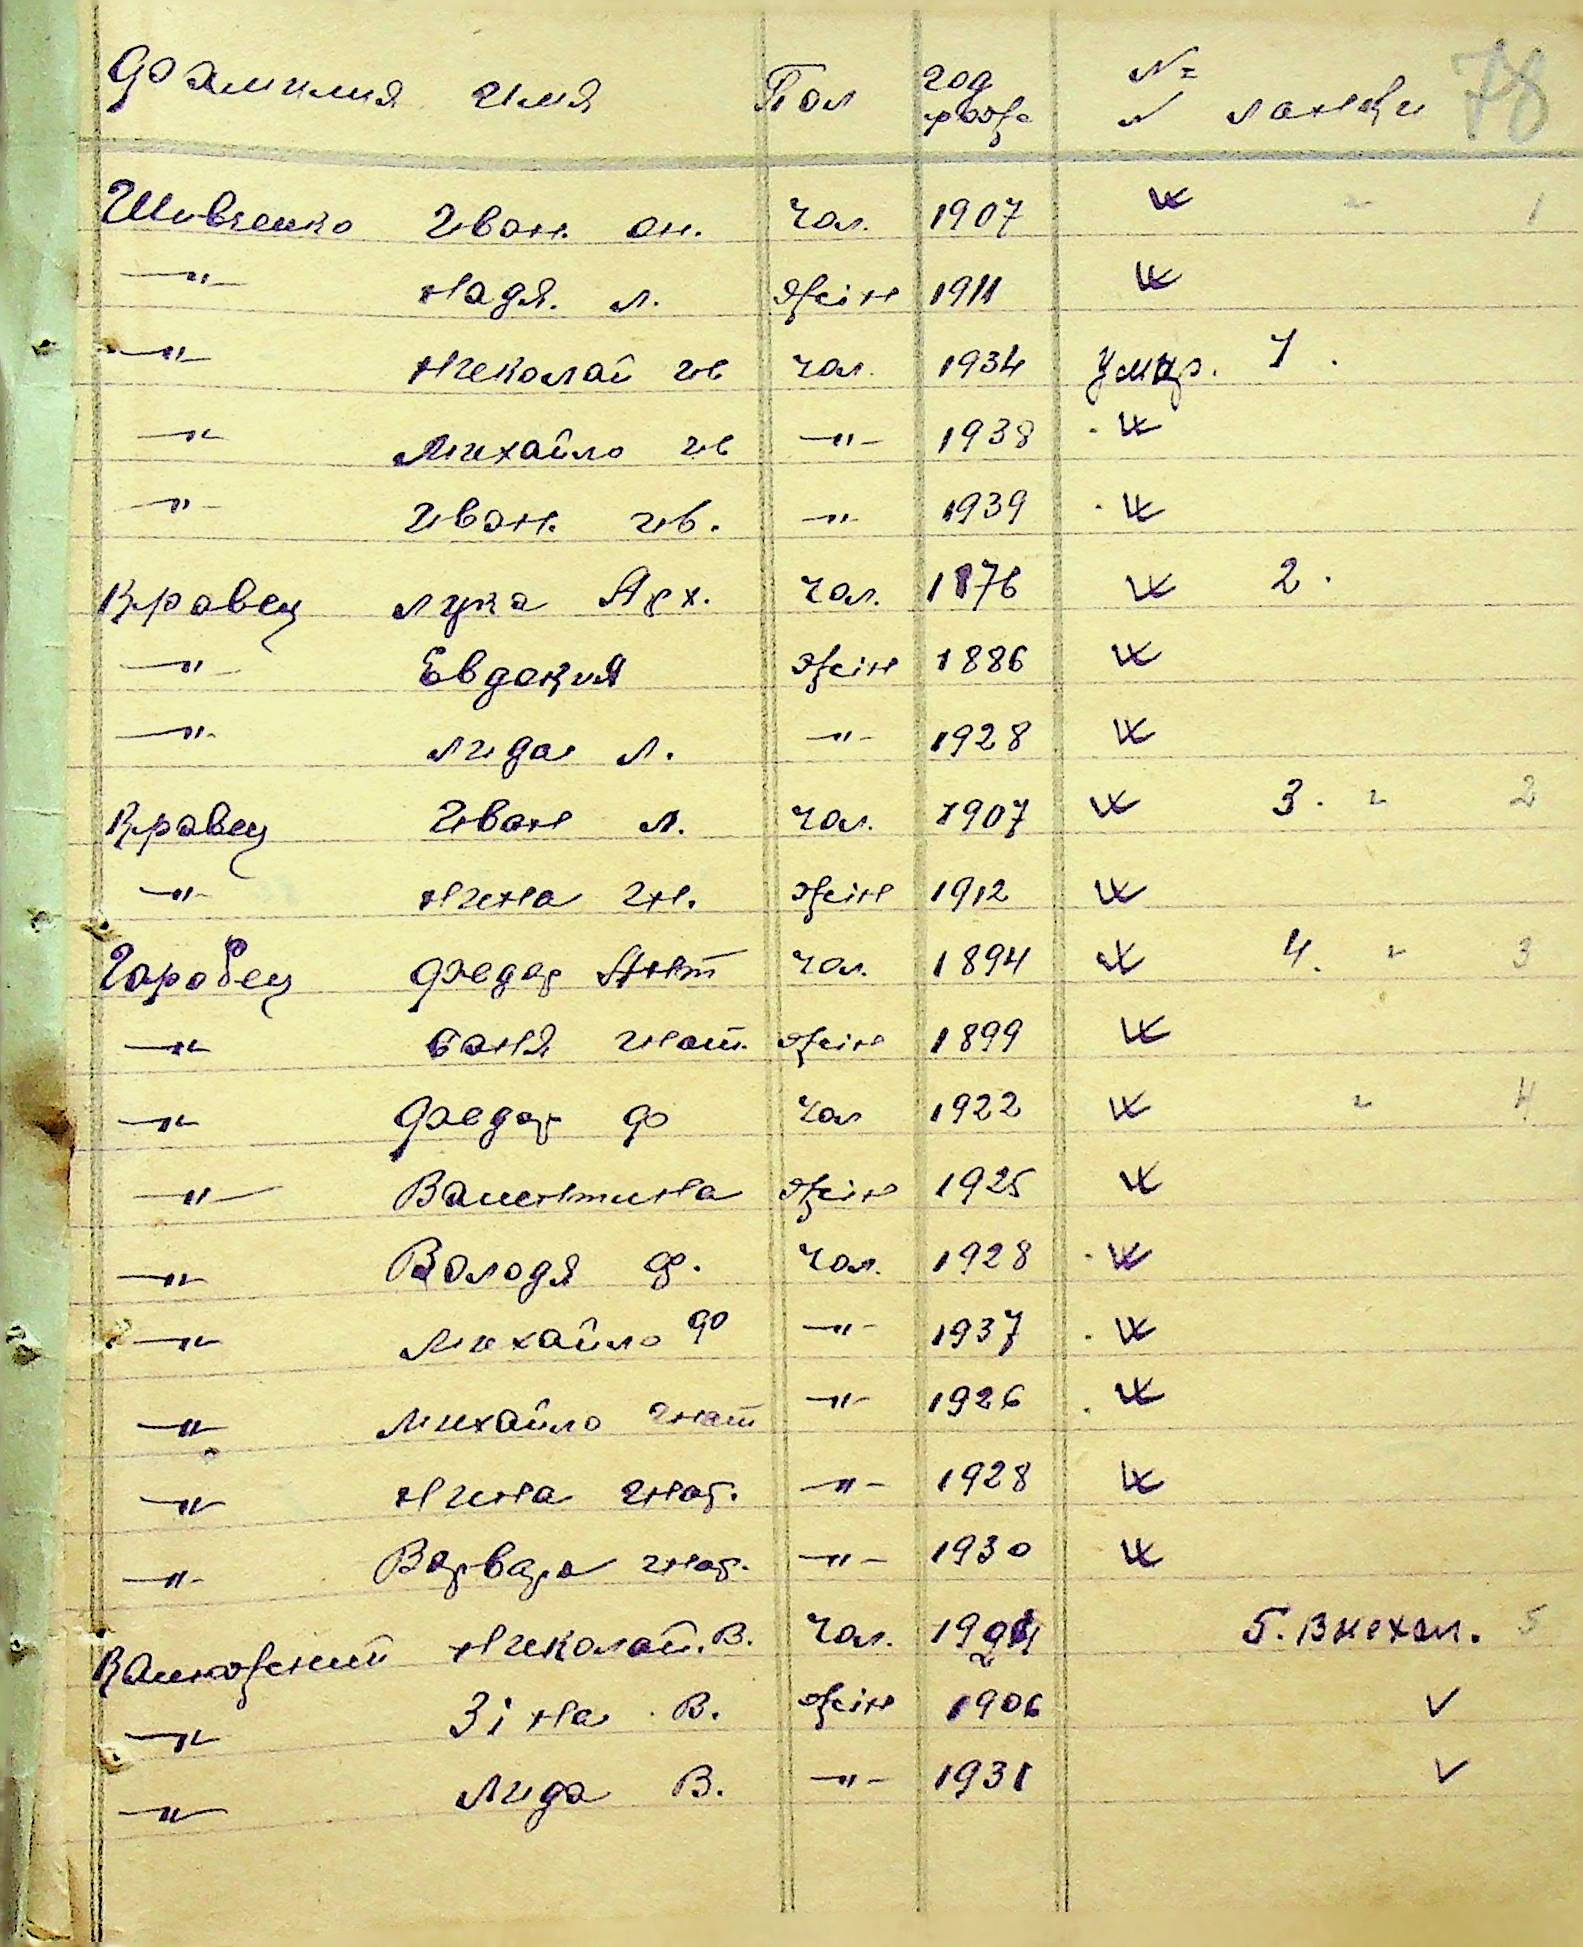 Фамилия имя Пол год рожд № ланки 78
Шевченко Иван. Ан. чол. 1907 1
—"— Надя. Л. жін 1911
—"— Николай Ив чол. 1934 Умер. 1.
—"— Михайло Ив —"— 1938
—"— Иван. Ив. —"— 1939
Кравец Лука Арх. чол. 1876 2.
—"— Евдокия жін 1886
—"— Лида Л. —"— 1928
Кравец Иван Л. чол. 1907 3. " 2
—"— Нина Ін. жін 1912
Горобец Федор Ант чол. 1894 4. " 3
—"— Ганя Игнат. жін 1899
—"— Федор Ф чол 1922 " 4
—"— Валентина жін 1925
—"— Володя Ф. чол. 1928
—"— Михайло Ф —"— 1937
—"— Михайло Гнат —"— 1926
—"— Нина Гнат. —"— 1928
—"— Варвара Гнат. —"— 1930
Николай. В. чол. 5. Виехал. 5
—"— Зіна В. жін 1906 V
—"— Лида В. —"— 1931 V